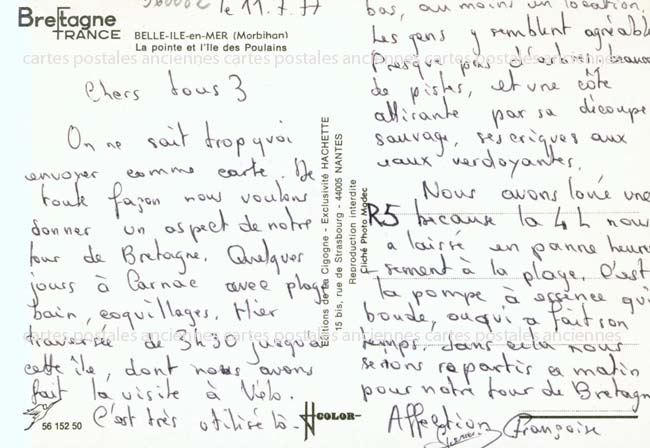 Bretagne
FRANCE
BELLE-ILE-en-MER (Morbihan)
La pointe et l'Ile des Poulains
le 11.7.77
Chers tous 3
On ne sait trop quoi
envoyer comme carte. De
toute façon nous voulons
donner un aspect de notre
tour de Bretagne. Quelques
jours à Carnac avec plage
bain, coquillages. Hier
traversée de 3h30 jusqu'à
cette île, dont nous avons
fait la visite à Vélo.
C'est très utilisé là-
bas, au moins un location.
Les gens y semblent agréabl
Presque pas d'
de pistes, et une côte
attirante par sa découpe
sauvage, ses criques aux
eaux verdoyantes.
Nous avons loué une
R5 because la 4L nous
a laissé en panne heureu
sement à la plage. C'est
la pompe à essence qui
boude, ou qui a fait son
temps. Sans cela nous
serions repartis ce matin
pour notre tour de Bretagne
Affection
Françoise
Editions de la Cigogne - Exclusivité HACHETTE
15 bis, rue de Strasbourg - 44005 NANTES
Reproduction interdite
Cliché Photo Modec
56 152 50
COLOR
cartes postales anciennes cartes postales anciennes cartes postales anciennes
cartes postales anciennes cartes postales anciennes cartes postales anciennes